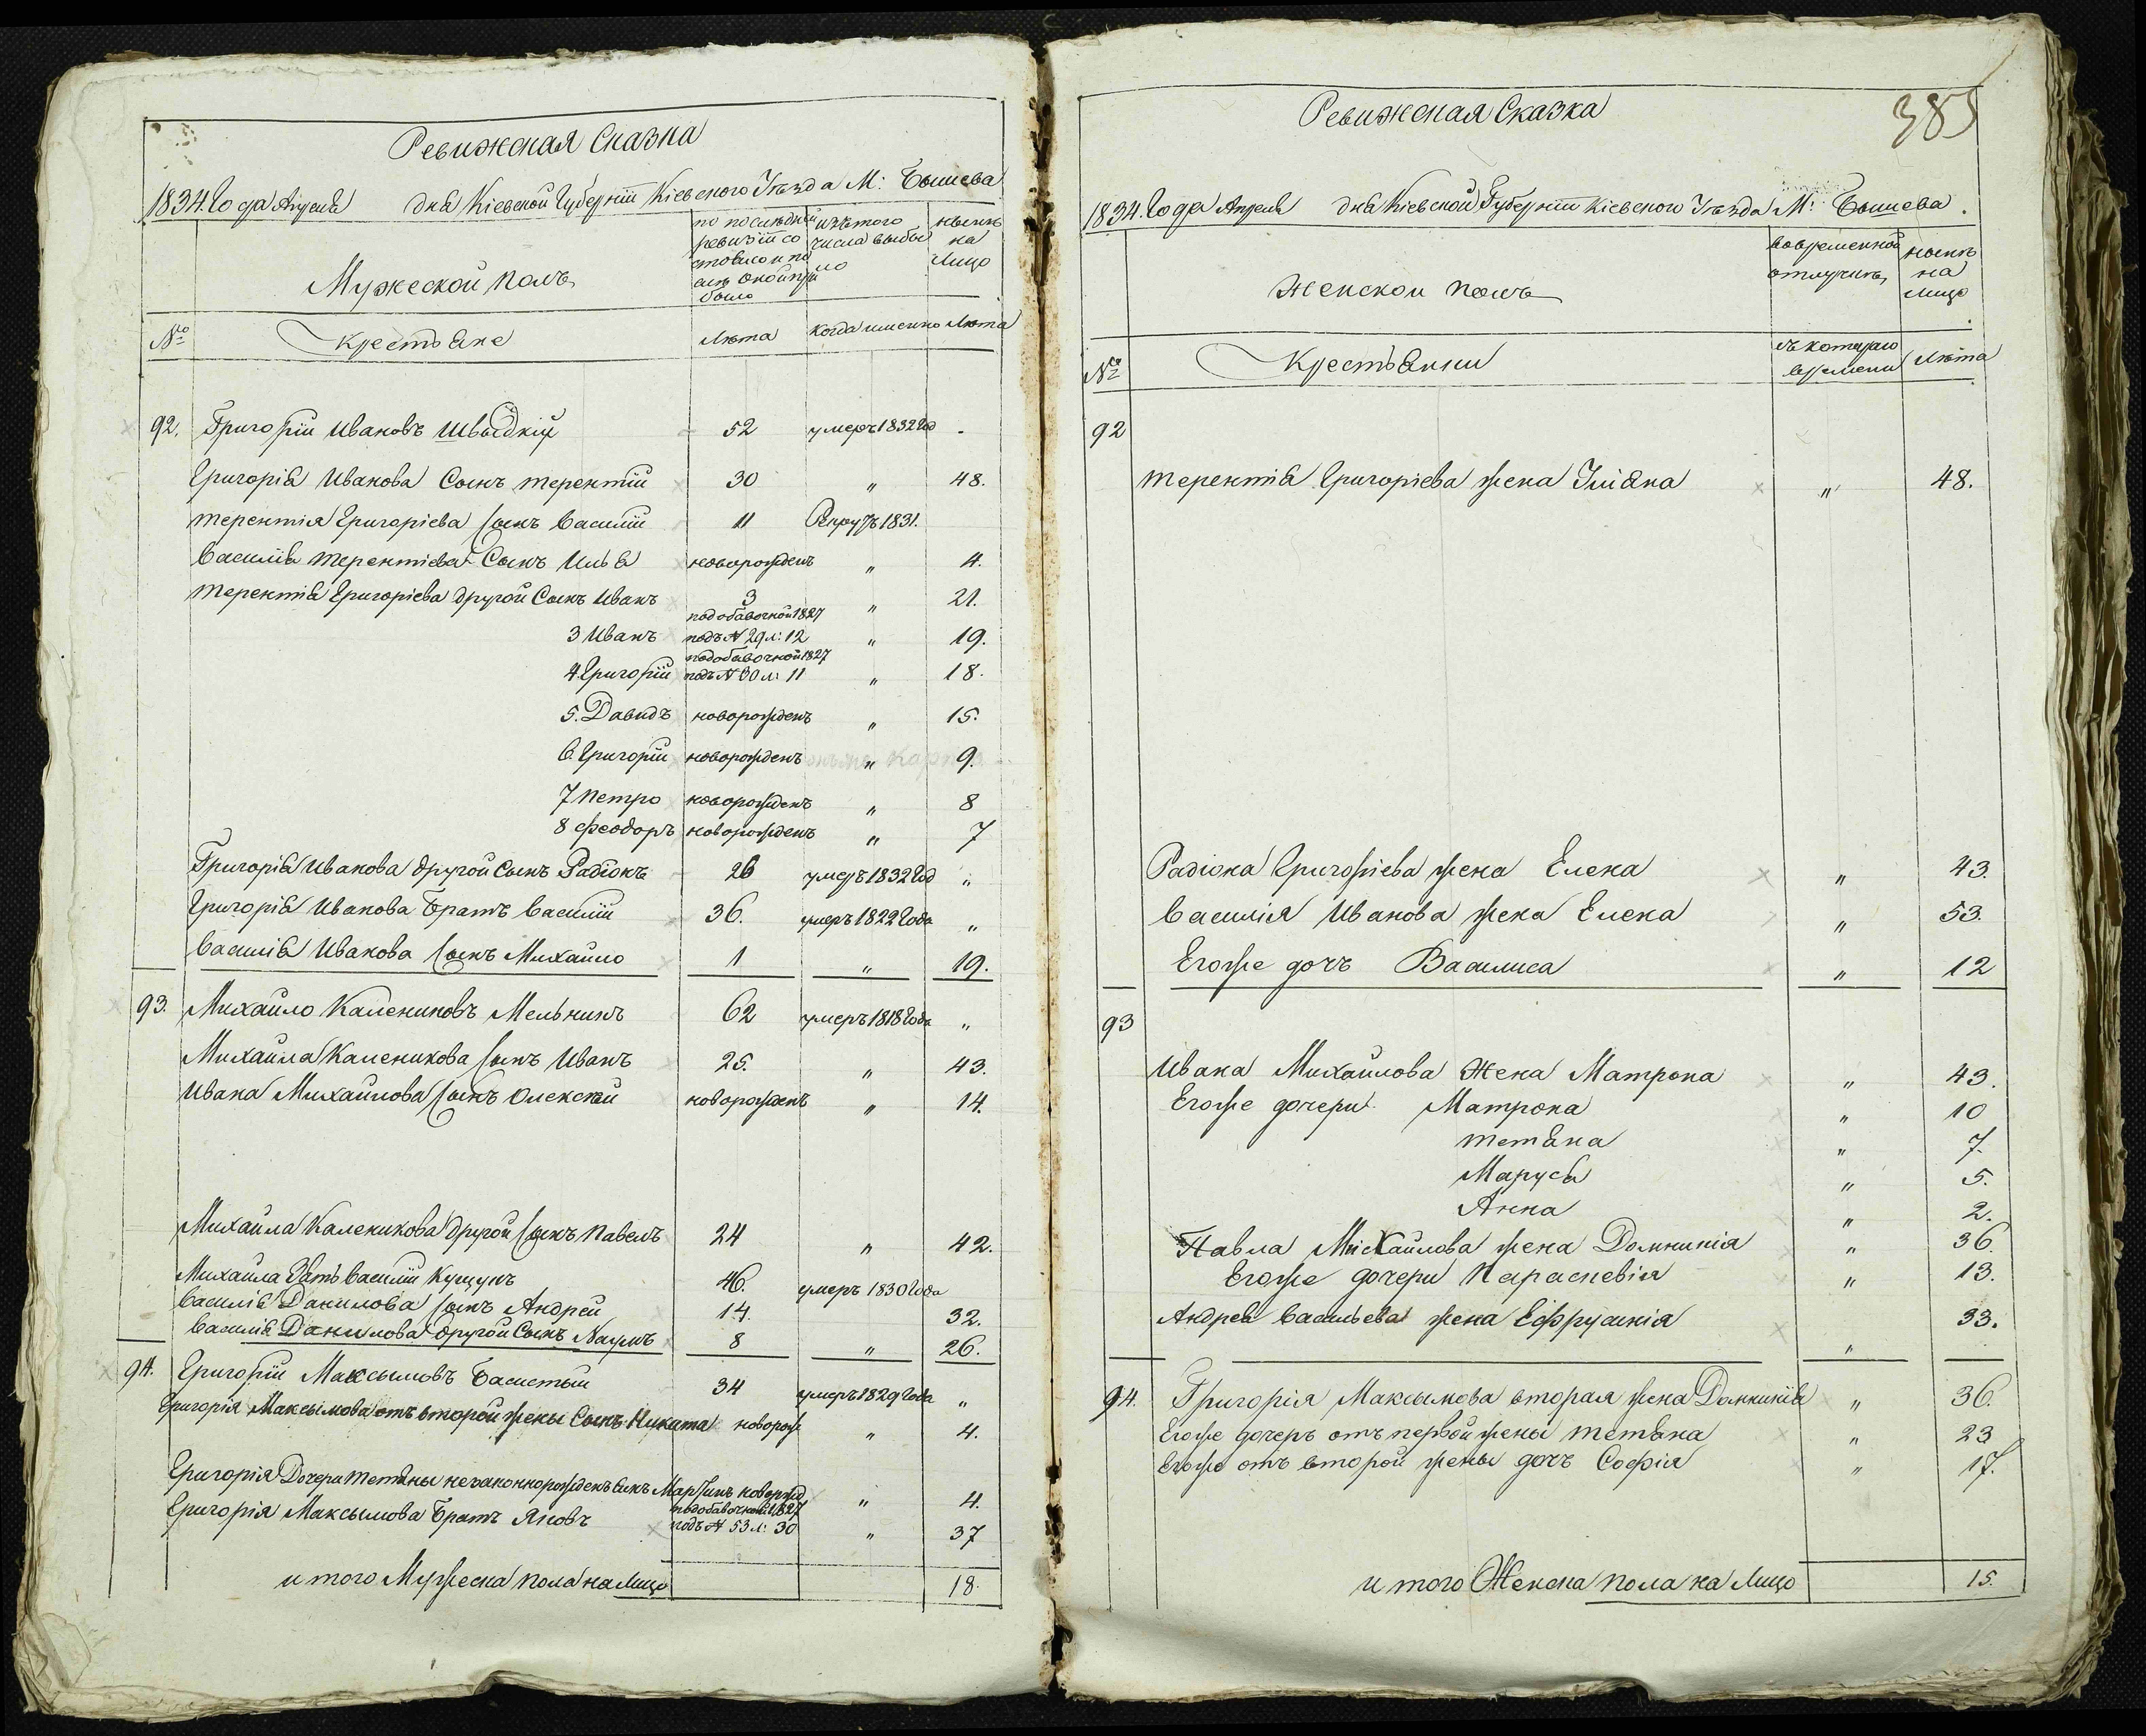 Ревижская Сказка
1834. Года Апреля дня Кіевской Губерніи Кіевского Уѣзда М: Бышева
Мужеской полъ
по послѣдней ревизіи состояло и послѣ оной прибыло
изъ того числа выбыло
нынѣ на лицо
№ Крестьяне Лѣта Когда именно Лѣта
92. Григорій Ивановъ Швыдкій 52 умеръ 1832 год
Григорія Иванова Сынъ терентій 30 " 48.
терентія Григоріева Сынъ Василій 11 Рекрутъ 1831.
Василія терентіева Сынъ Илья новорожденъ " 4.
терентія Григоріева другой Сынъ Иванъ 3 " 21.
3 Иванъ подобавочной 1827 подъ № 29 л: 12 " 19.
4 Григорій подобавочной 1827 подъ № 30 л: 11 " 18.
5. Давидъ новорожденъ " 15.
6. Григорій новорожденъ " 9.
7 петро новорожденъ " 8
8 феодоръ новорожденъ " 7
Григорія Иванова другой Сынъ Радіонъ 26 умеръ 1832 год "
Григорія Иванова Братъ Василій 36. умеръ 1822 года "
Василія Иванова Сынъ Михайло 1 " 19.
93. Михайло Калениковъ Мельникъ 62 умеръ 1818 года "
Михайла Каленикова Сынъ Иванъ 25. " 43.
Ивана Михайлова Сынъ Олексѣй новорожденъ " 14.
Михайла Каленикова другой Сынъ павелъ 24 " 42.
Михайла Зять Василій Кущукъ 46. умеръ 1830 года
Василія Данилова Сынъ Андрей 14. 32.
Василія Данилова другой Сынъ Наумъ 8 " 26.
94. Григорій Максымовъ Басистый 34 умеръ 1829 года "
Григорія Максымова отъ второй жены Сынъ Никита новорож " 4.
Григорія Дочери тетяны незаконнорожденъ Сынъ Мартинъ новорожд " 4.
Григорія Максымова Братъ Яковъ подобавочной 1827 подъ № 53 л: 30 " 37
и того Мужеска пола на лицо 18.
385
Ревижская Сказка
1834. Года Апреля дня Кіевской Губерніи Кіевского Уѣзда М: Бышева.
Женской полъ
вовременной отлучкѣ
нынѣ на лицо
№ Крестьянки съ котораго времени Лѣта
92
терентія Григоріева жена Уліяна " 48.
Радіона Григоріева жена Елена " 43.
Василія Иванова жена Елена " 53.
Егоже дочъ Василиса " 12
93
Ивана Михайлова Жена Матрона " 43.
Егоже дочери Матрона " 10
тетяна " 7.
Маруся " 5.
Анна " 2.
Павла Михайлова жена Домникія " 36.
Егоже дочери Параскевія " 13.
Андрея Васильева жена Ефрусинія " 33.
94. Григорія Максымова вторая жена Домникія " 36.
Егоже дочерь отъ первой жены тетяна " 23
Егоже отъ второй жены дочъ Софія " 17.
и того Женска пола на лицо 15.